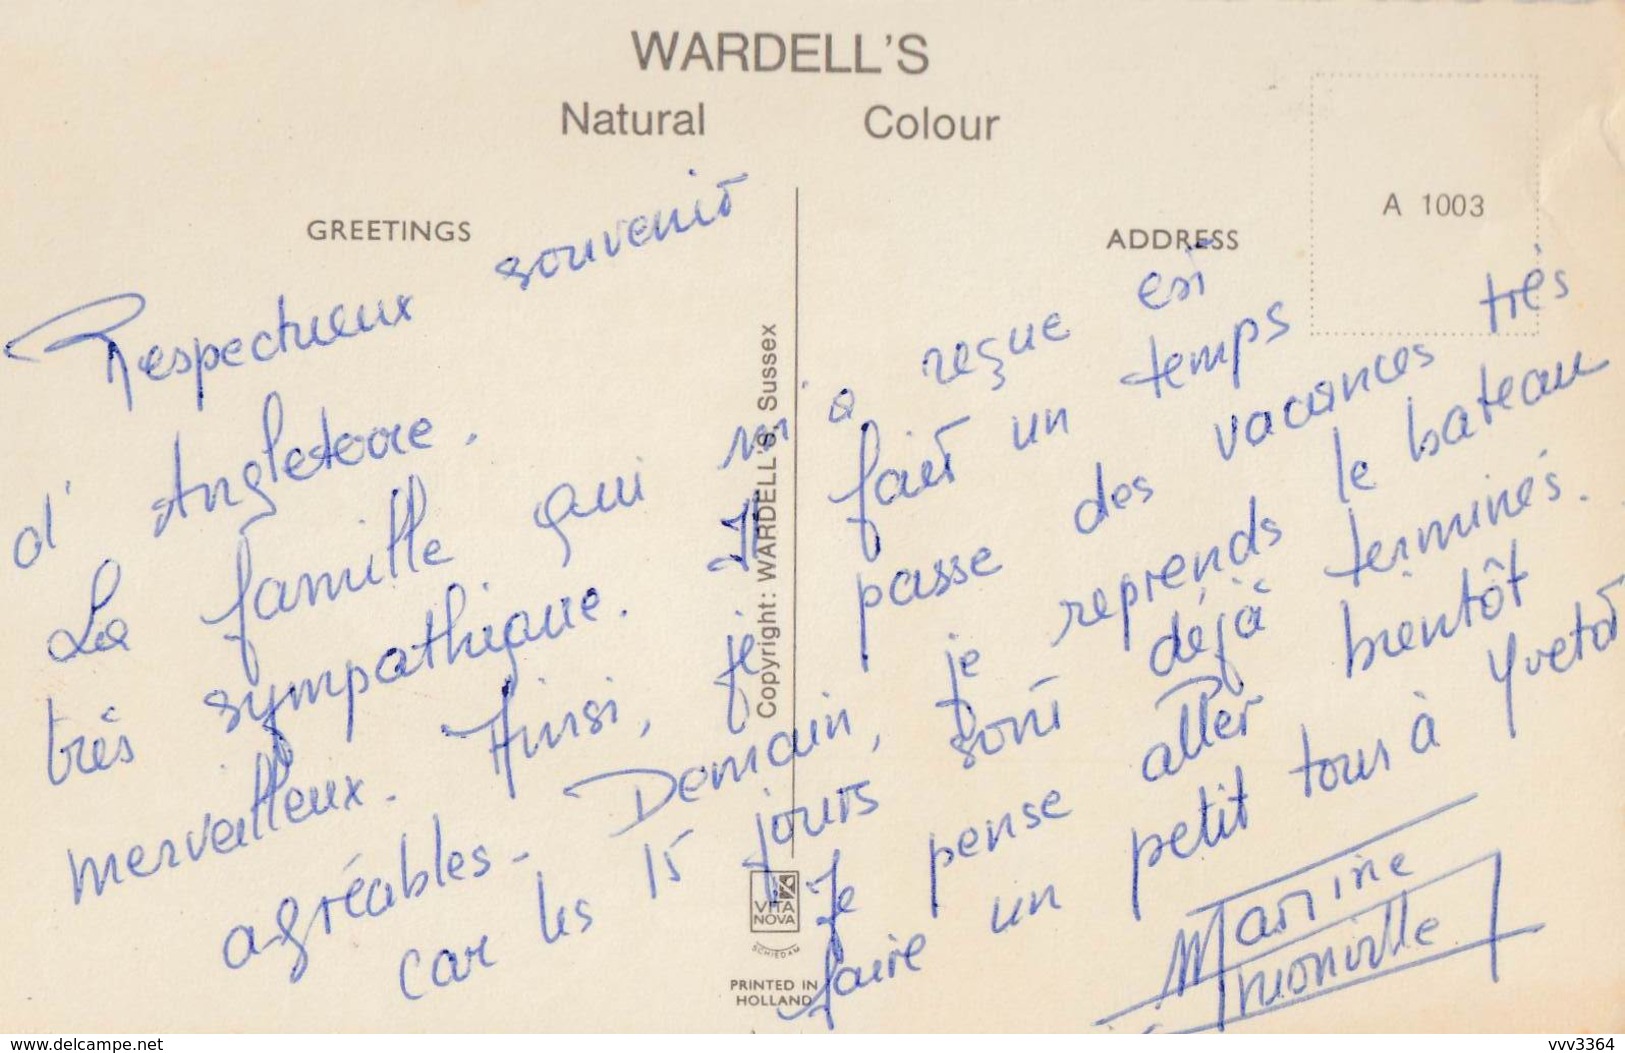 WARDELL'S
Natural Colour
GREETINGS
ADDRESS
A 1003
Respectueux souvenir
d'Angleterre.
La famille qui m'a reçue est
très sympathique. Il fait un temps
merveilleux. Ainsi, je passe des vacances très
agréables. Demain, je reprends le bateau
car les 15 jours sont déjà terminés.
Je pense aller bientôt
faire un petit tour à Yvetot
Martine
Copyright: WARDELL'S, Sussex
VITA
NOVA
SCHIEDAM
PRINTED IN
HOLLAND
www.delcampe.net
vvv3364